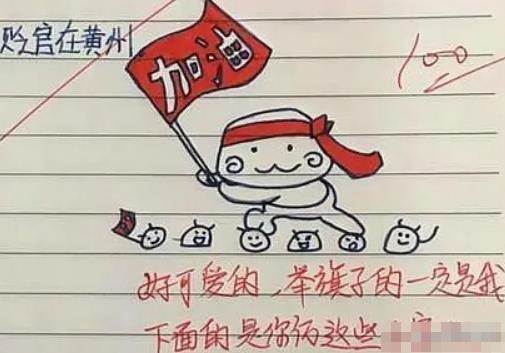 贬官在黄州
加油
100
好可爱的，举旗子的一定是我
下面的是你们这些